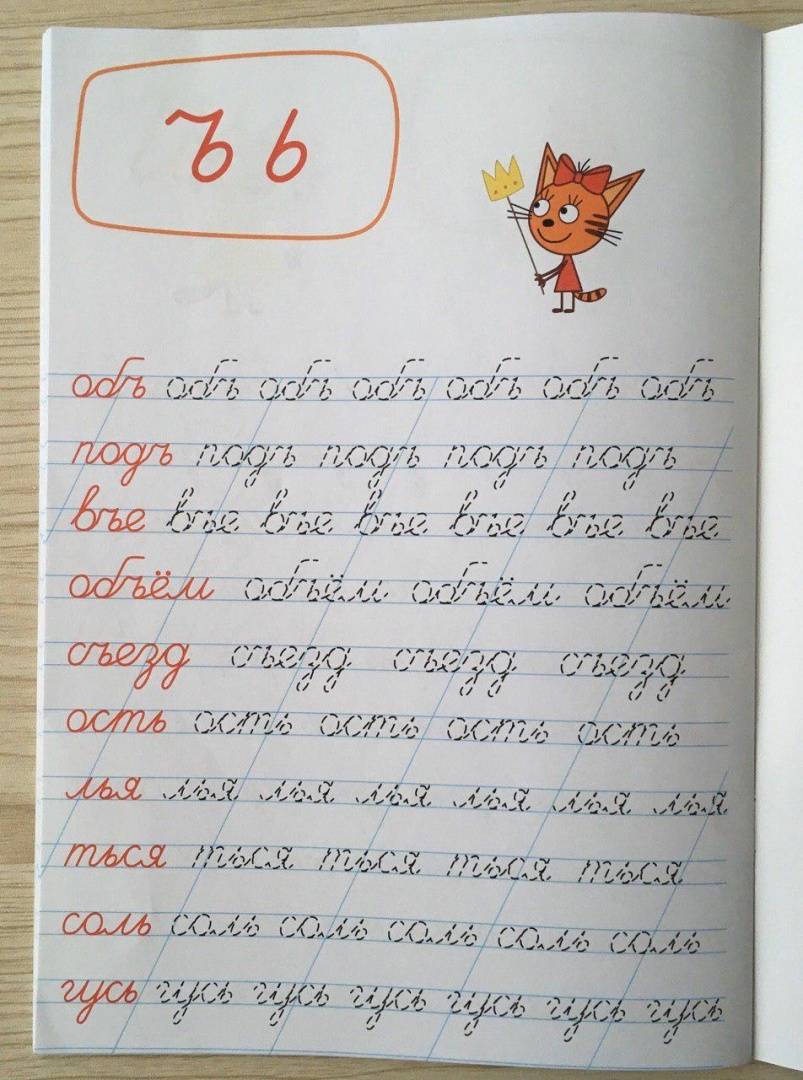 Ъ ь
объ объ объ объ объ объ объ
подъ подъ подъ подъ подъ
въе въе въе въе въе въе въе
объём объём объём объём
съезд съезд съезд съезд
ость ость ость ость ость
лья лья лья лья лья лья лья
ться ться ться ться ться
соль соль соль соль соль соль
гусь гусь гусь гусь гусь гусь гусь